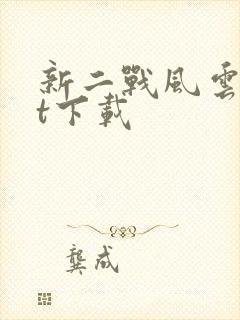 新二戰風雲
t下載
龔成